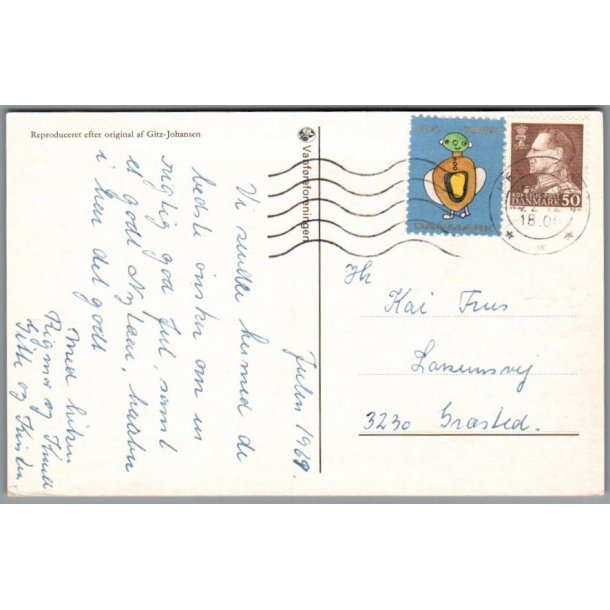 Reproduceret efter original af Gitz-Johansen
Vanføreforeningen
DANMARK
DANMARK 50
18.00
Julen 1969.
Vi sender hermed de
bedste ønsker om en
rigtig god Jul, samt
et godt Nytaar, haaber
i har det godt
Med hilsen
Rigmor og
Gitte og
Hr
Kai Friis
3230 Græsted.